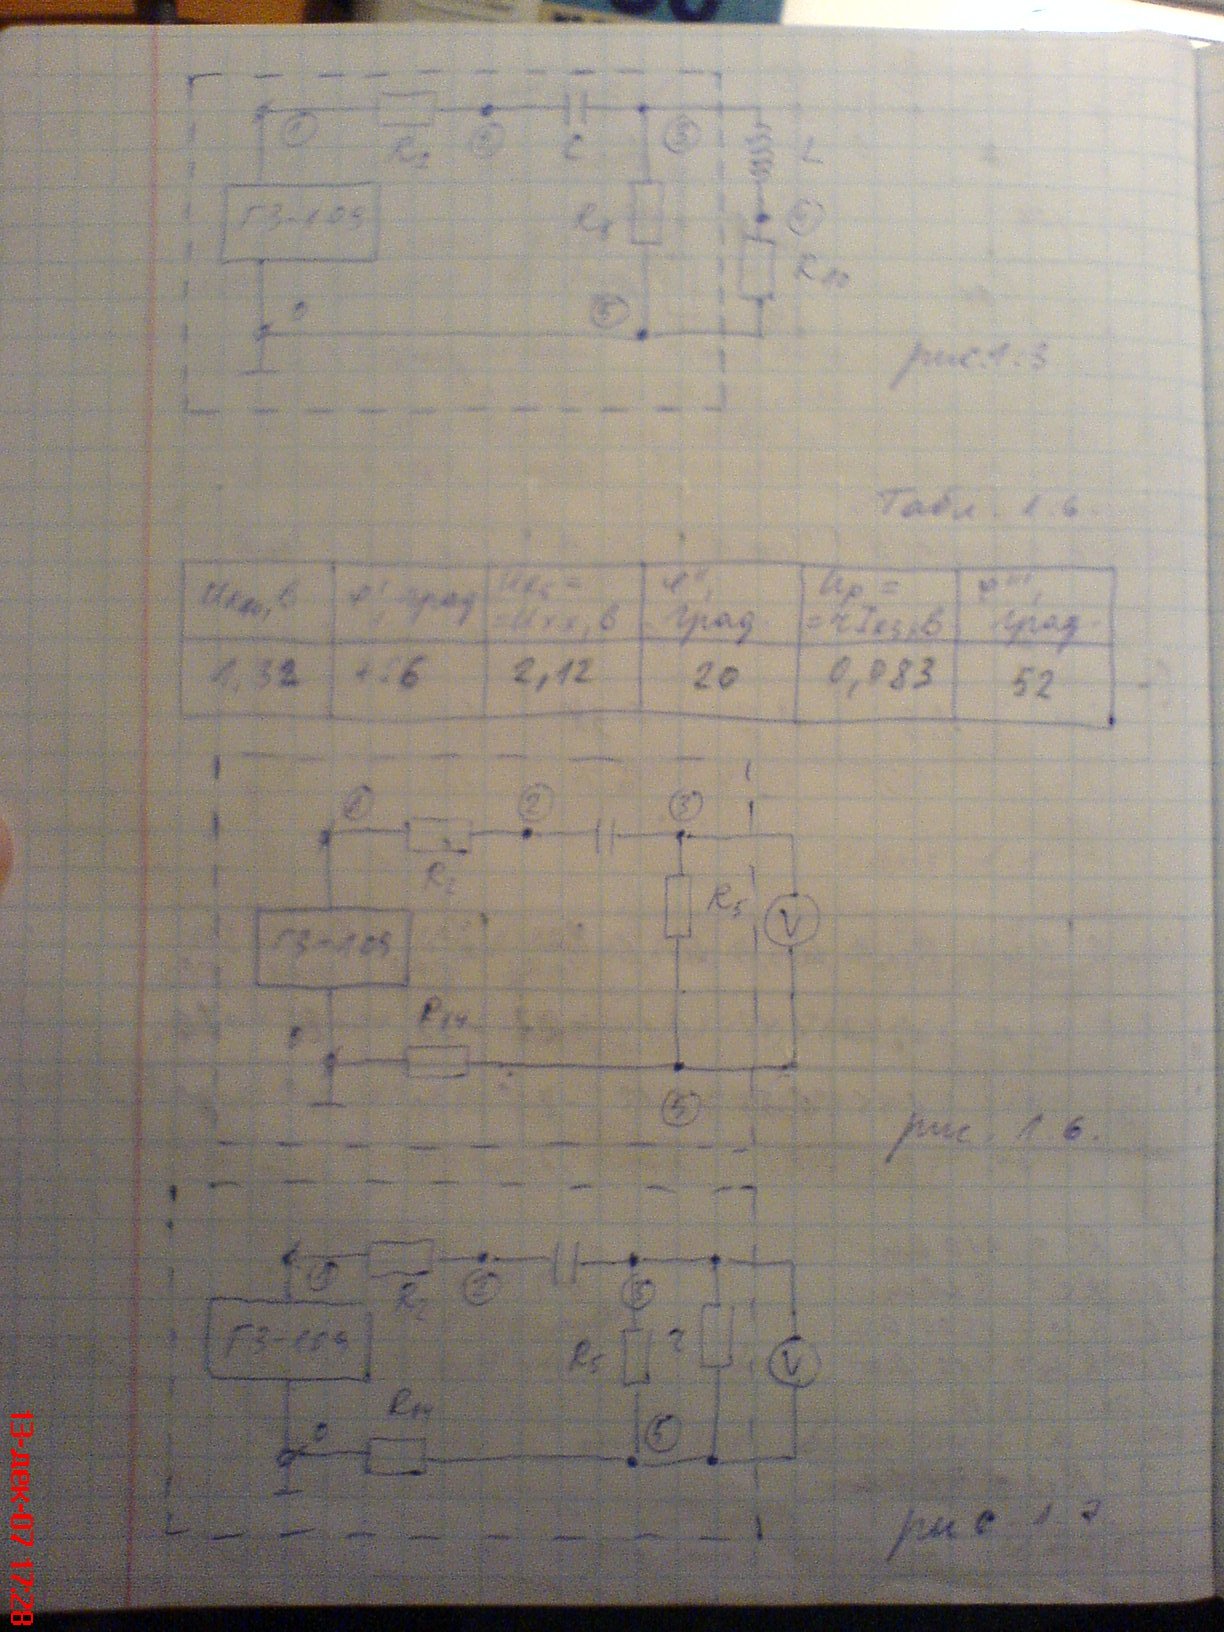 ①
R2
②
C
③
L
Г3-109
R5
⑥
R10
0
⑤
рис.1.3
Табл. 1.6.
UR10, В
φ', град
UR5 =
=Uхх, В
φ'',
град
Uр =
=rIкз, В
φ''',
град.
1,32
2,12
20
0,083
52
①
②
③
R2
R5
V
Г3-109
R14
0
⑤
рис. 1.6.
①
R2
②
③
Г3-109
R5
r
V
R14
0
⑤
рис 1.7
13-дек-07 17:28